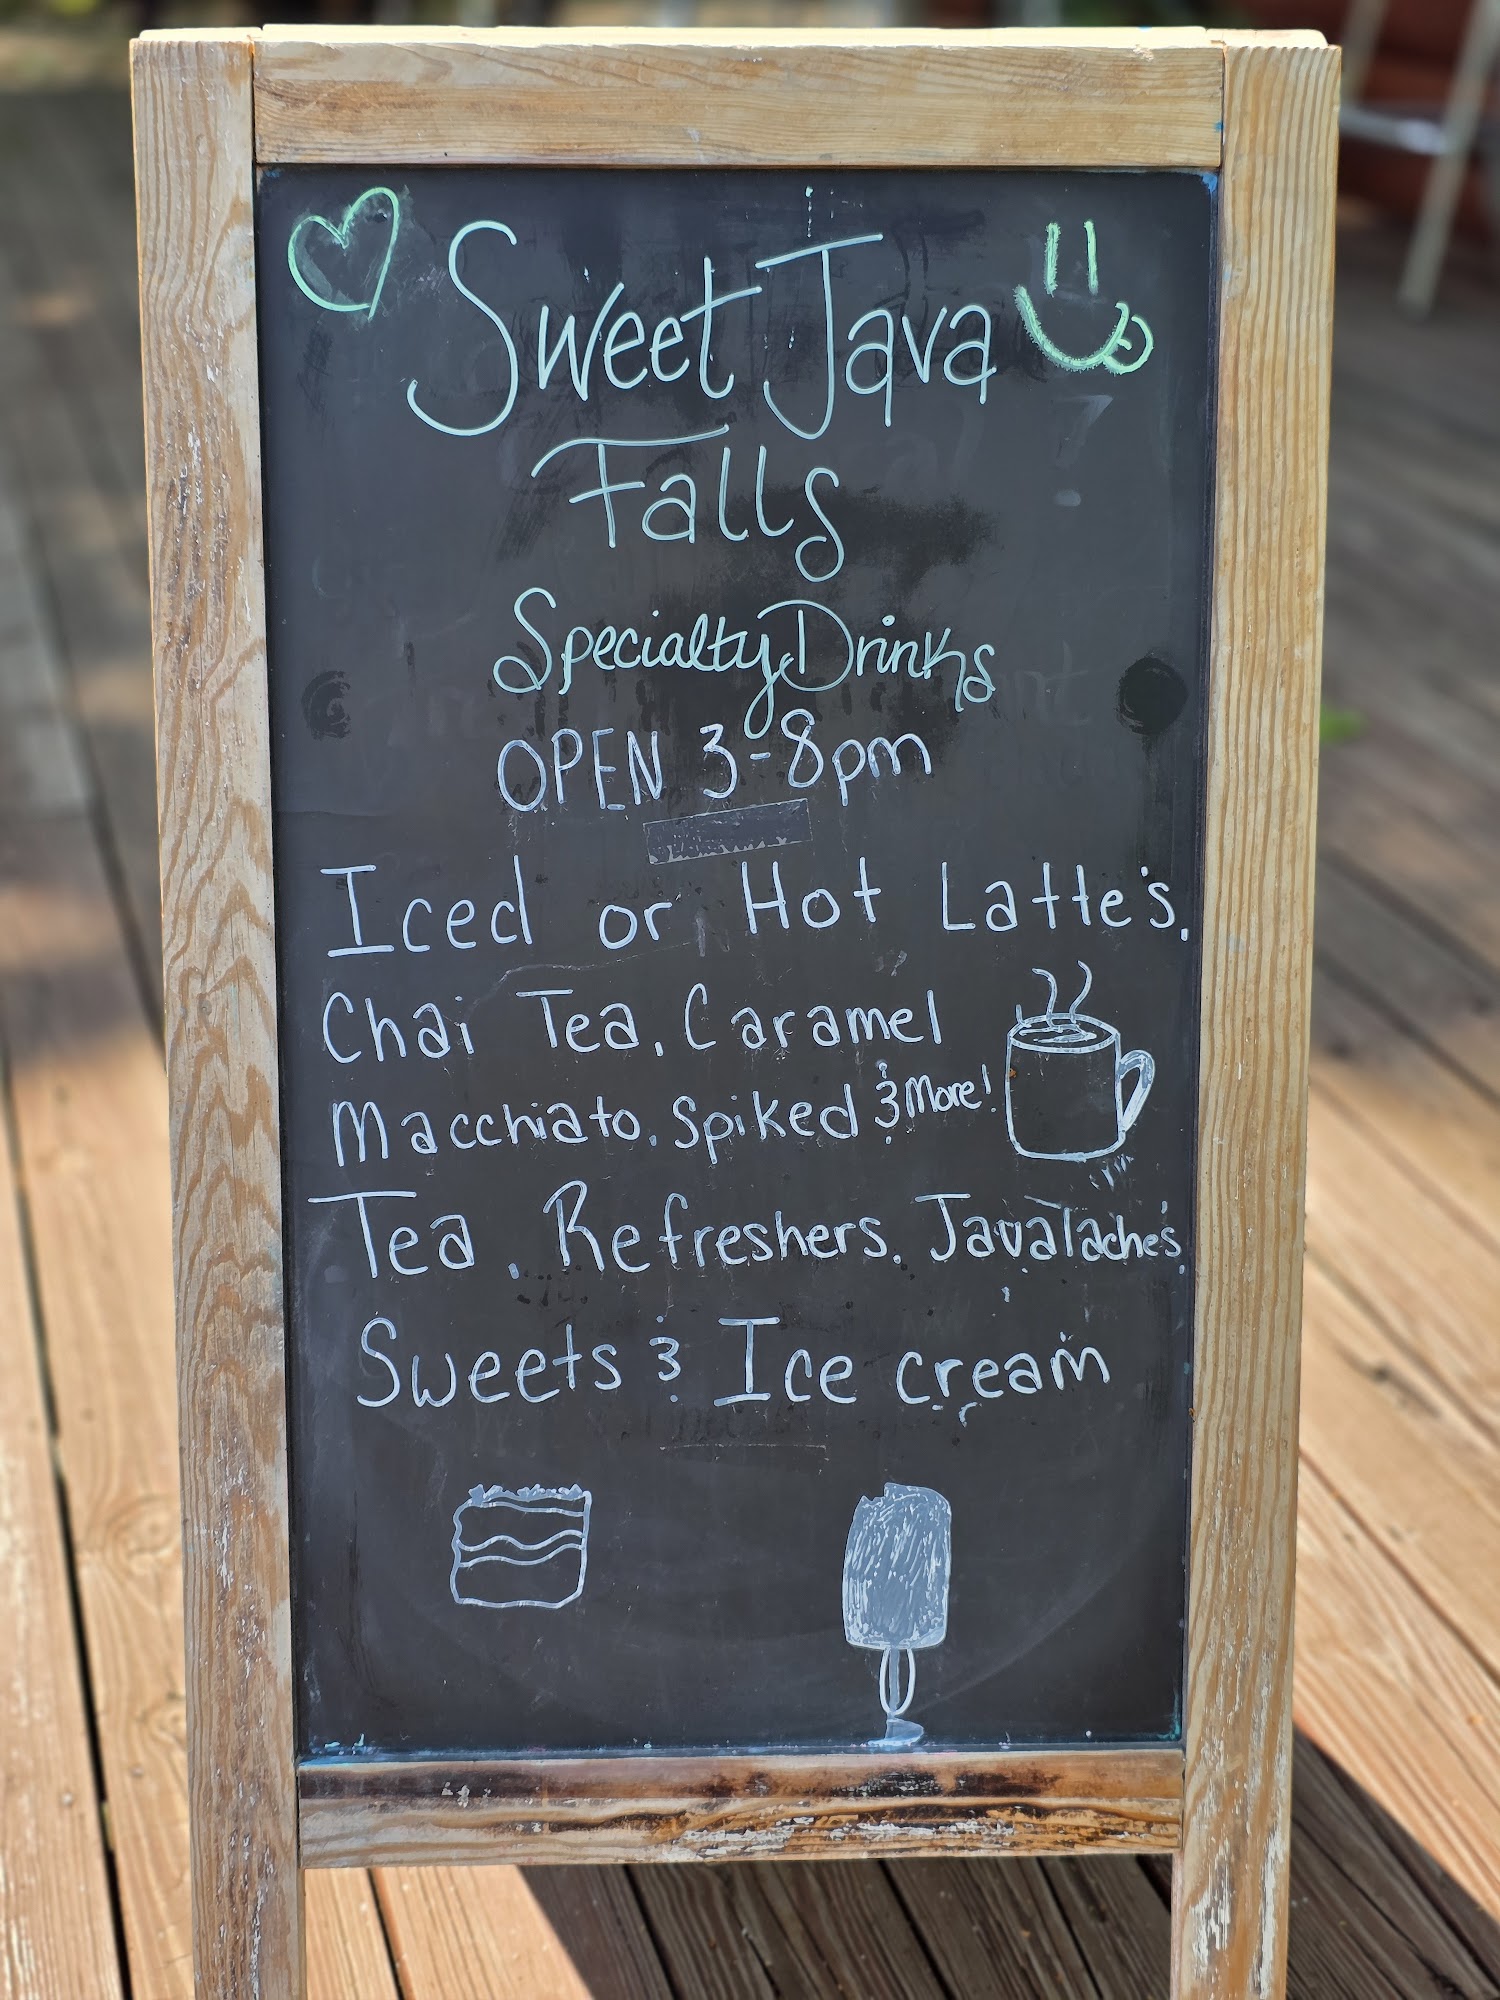 Sweet Java
Falls
Specialty Drinks
OPEN 3-8pm
Iced or Hot Latte's,
Chai Tea, Caramel
Macchiato, Spiked & More!
Tea, Refreshers, Javalache's,
Sweets & Ice cream